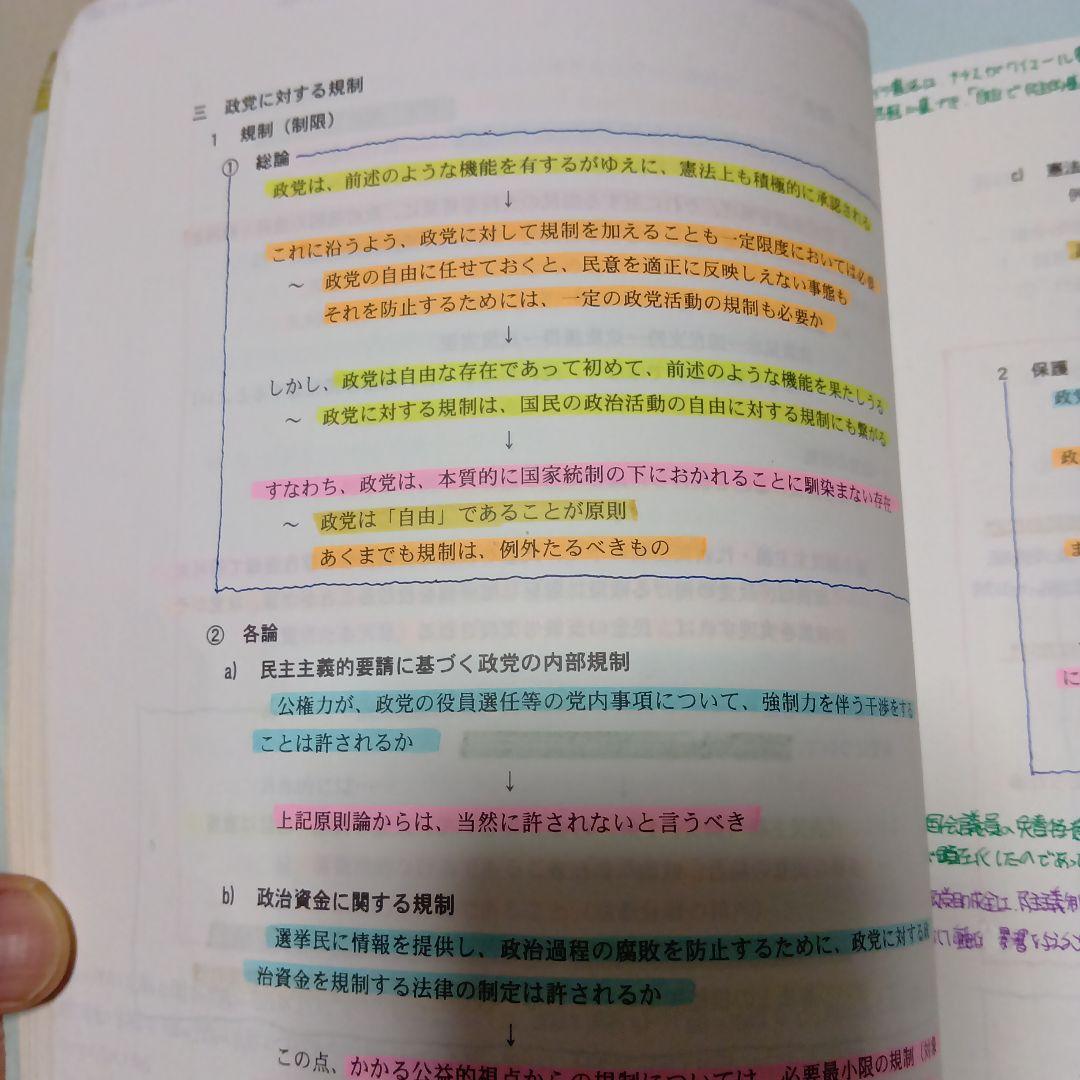 三 政党に対する規制
1 規制（制限）
① 総論
政党は、前述のような機能を有するがゆえに、憲法上も積極的に承認される
↓
これに沿うよう、政党に対して規制を加えることも一定限度においては必要
～ 政党の自由に任せておくと、民意を適正に反映しえない事態も
それを防止するためには、一定の政党活動の規制も必要か
↓
しかし、政党は自由な存在であって初めて、前述のような機能を果たしうる
～ 政党に対する規制は、国民の政治活動の自由に対する規制にも繋がる
↓
すなわち、政党は、本質的に国家統制の下におかれることに馴染まない存在
～ 政党は「自由」であることが原則
あくまでも規制は、例外たるべきもの
② 各論
a) 民主主義的要請に基づく政党の内部規制
公権力が、政党の役員選任等の党内事項について、強制力を伴う干渉をする
ことは許されるか
↓
上記原則論からは、当然に許されないと言うべき
b) 政治資金に関する規制
選挙民に情報を提供し、政治過程の腐敗を防止するために、政党に対する政
治資金を規制する法律の制定は許されるか
↓
この点、かかる公益的視点からの規制については、必要最小限の規制（対象
c) 憲法
例
2 保護
政党
政
に
国会議員の
顕在化したのであっ